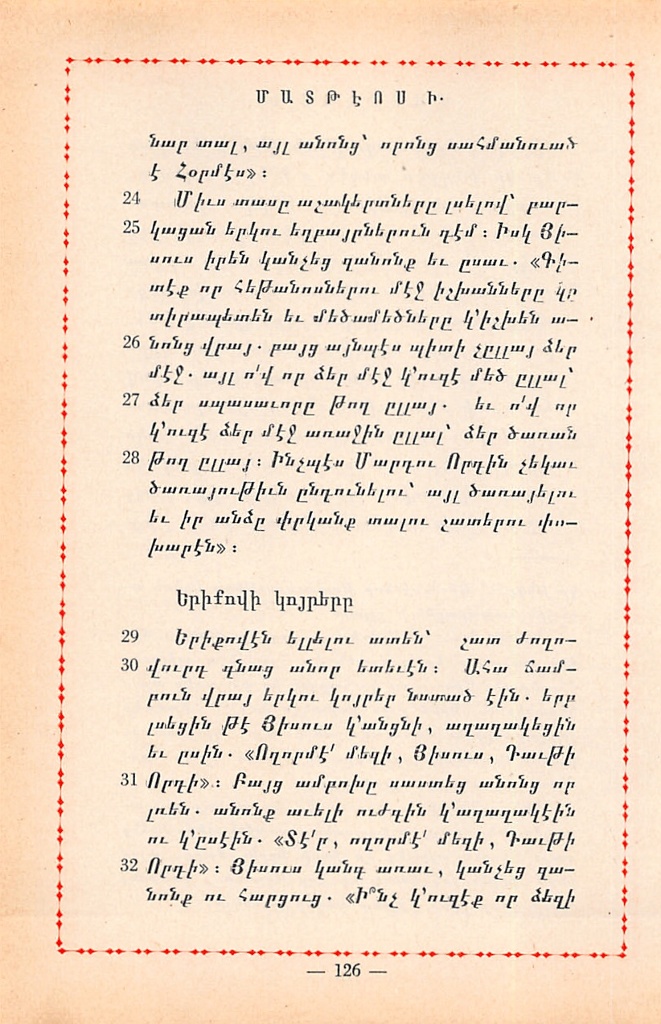 ՄԱՏԹԷՈՍ Ի.
նար տալ, այլ անոնց՝ որոնց սահմանուած
է Հօրմէս»։
24 Միւս տասը աշակերտները լսելով՝ բար-
25 կացան երկու եղբայրներուն դէմ։ Իսկ Յի-
սուս իրեն կանչեց զանոնք եւ ըսաւ. «Գի-
տէք որ հեթանոսներու մէջ իշխանները կը
տիրապետեն եւ մեծամեծները կ՚իշխեն ա-
26 նոնց վրայ. բայց այնպէս պիտի չըլլայ ձեր
մէջ. այլ ո՛վ որ ձեր մէջ կ՚ուզէ մեծ ըլլալ՝
27 ձեր սպասաւորը թող ըլլայ. եւ ո՛վ որ
կ՚ուզէ ձեր մէջ առաջին ըլլալ՝ ձեր ծառան
28 թող ըլլայ։ Ինչպէս Մարդու Որդին չեկաւ
ծառայութիւն ընդունելու՝ այլ ծառայելու
եւ իր անձը փրկանք տալու շատերու փո-
խարէն»։
Երիքովի կոյրերը
29 Երիքովէն ելլելու ատեն՝ շատ ժողո-
30 վուրդ գնաց անոր ետեւէն։ Ահա ճամ-
բուն վրայ երկու կոյրեր նստած էին. երբ
լսեցին թէ Յիսուս կ՚անցնի, աղաղակեցին
եւ ըսին. «Ողորմէ՛ մեզի, Յիսուս, Դաւթի
31 Որդի»։ Բայց ամբոխը սաստեց անոնց որ
լռեն. անոնք աւելի ուժգին կ՚աղաղակէին
ու կ՚ըսէին. «Տէ՛ր, ողորմէ՛ մեզի, Դաւթի
32 Որդի»։ Յիսուս կանգ առաւ, կանչեց զա-
նոնք ու հարցուց. «Ի՞նչ կ՚ուզէք որ ձեզի
— 126 —